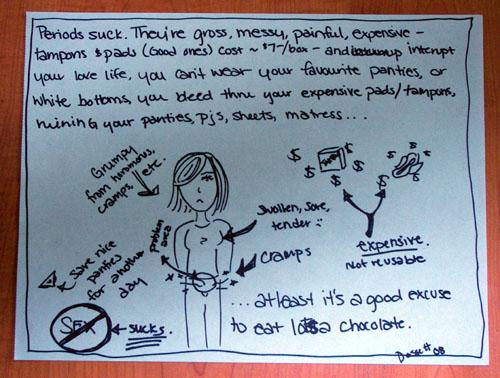 Periods suck. They're gross, messy, painful, expensive -
tampons & pads (Good ones) cost ~ $7-/box - and interupt
you love life, you can't wear your favourite panties, or
white bottoms, you bleed thru your expensive pads/tampons,
ruining your panties, pjs, sheets, matress...
Grumpy
from hormones,
cramps,
etc.
problem
area
Swollen, sore,
tender :(
CRAMPS
save nice
panties
for another
day
SEX
← SUCKS.
$ $ $ $ $ $ $ $
expensive.
Not reusable
...atleast it's a good excuse
to eat lotsa chocolate.
08